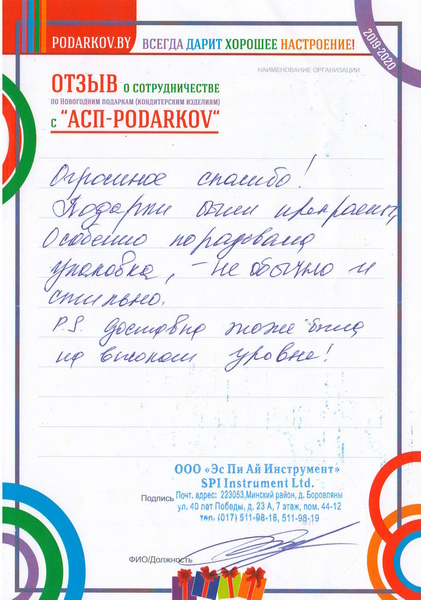 PODARKOV.BY ВСЕГДА ДАРИТ ХОРОШЕЕ НАСТРОЕНИЕ!
2019-2020
НАИМЕНОВАНИЕ ОРГАНИЗАЦИИ
ОТЗЫВ О СОТРУДНИЧЕСТВЕ
ПО НОВОГОДНИМ ПОДАРКАМ (КОНДИТЕРСКИМ ИЗДЕЛИЯМ)
С "АСП-PODARKOV"
Огромное спасибо!
Подарки были прекрасны,
Особенно порадовала
упаковка, – не обычно и
стильно.
P.S. доставка тоже была
на высоком уровне!
ООО «Эс Пи Ай Инструмент»
SPI Instrument Ltd.
Подпись Почт. адрес: 223053, Минский район, д. Боровляны
ул. 40 лет Победы, д. 23 А, 7 этаж, пом. 44-12
тел. (017) 511-98-18, 511-98-19
ФИО/Должность